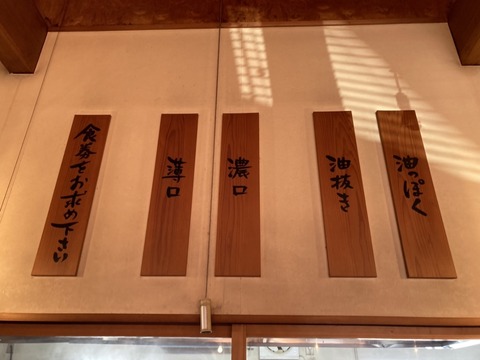 油っぽく
油抜き
濃口
薄口
食券をお求め下さい